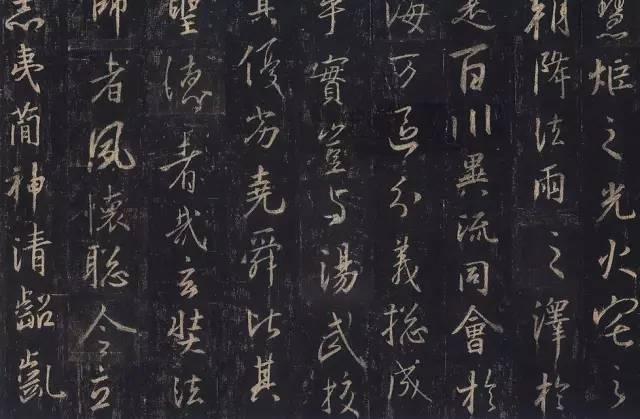 慧炬之光火宅之
朝降法雨之澤於
是百川異流同會於
海万區分義捴成
乎實豈与湯武挍
其優劣堯舜比其
聖德者哉玄奘法
師者夙懷聡令立
志夷簡神清齠齔